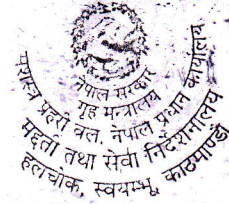 नेपाल सरकार
गृह मन्त्रालय
सशस्त्र प्रहरी बल, नेपाल प्रधान कार्यालय
मद्दती तथा सेवा निर्देशनालय
हलचोक, स्वयम्भू, काठमाण्डौ